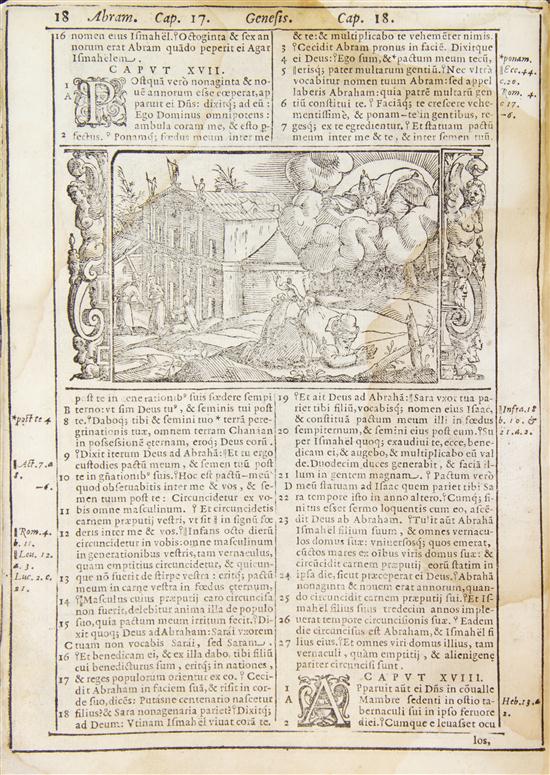 18 Abram. Cap. 17. Genesis. Cap. 18.
16 nomen eius Ismahél. Octoginta & sex an
norum erat Abram quãdo peperit ei Agar
Ismahelem.
CAPVT XVII.
1 POstquã verò nonaginta & no-
A uê annorum esse cœperat, ap
paruit ei Dñs: dixitq; ad eũ:
Ego Dominus omnipotens:
ambula coram me, & esto p
2 fectus. Ponamq; fœdus meum inter me
& te: & multiplicabo te vehemẽter nimis.
3 Cecidit Abram pronus in faciẽ. Dixitque
4 ei Deus: Ego sum, & *pactum meum tecũ,
5 erisq; pater multarum gentiũ. Nec vltrà
vocabitur nomen tuum Abram: sed appel
laberis Abraham: quia patrẽ multarũ gen
6 tiũ constitui te. Faciãq; te crescere vehe-
mentissimè, & ponam te in gentibus, re-
7 gesq; ex te egredientur. Et statuam pactũ
meum inter me & te, & inter semen tuũ.
*ponam.
Ecc. 44.
c. 20.
Rom. 4.
c 17.
post te in generationib⁹ suis fœdere sempi
B terno: vt sim Deus tu⁹, & seminis tui post
8 te. Daboq; tibi & semini tuo * terrã pere-
grinationis tuæ, omnem terram Chanian
in possessionẽ æternam, eroq; Deus eorũ.
9 Dixit iterum Deus ad Abrahã: Et tu ergo
custodies pactũ meum, & semen tuũ post
10 te in gñationib⁹ suis. Hoc est pactũ meũ
quod obseruabitis inter me & vos, & se-
men tuum post te: Circuncidetur ex vo-
11 bis omne masculinum. Et circuncidetis
carnem præputij vestri, vt sit in signũ fœ
12 deris inter me & vos. Infans octo dierũ
circuncidetur in vobis: omne masculinum
in generationibus vestris, tam vernaculus,
quam emptitius circuncidetur, & quicun-
13 que nõ fuerit de stirpe vestra: eritq; pactũ
meum in carne vestra in fœdus æternum,
14 Masculus cuius præputij caro circuncisa
non fuerit, delebitur anima illa de populo
15 suo, quia pactum meum irritum fecit. Di-
xit quoq; Deus ad Abraham: Sarai vxorem
C tuam non vocabis Sarai, sed Saram.
16 Et benedicam ei, & ex illa dabo tibi filiũ
cui benedicturus sum, eritq; in nationes,
17 & reges populorum orientur ex eo. Ceci-
dit Abraham in faciem suã, & risit in cor-
de suo, dicẽs: Putasne centenario nascetur
18 filius? & Sara nonagenaria pariet? Dixitq;
ad Deum: Vtinam Ismahel viuat corã te.
*post te 4
Act. 7. a
8.
Rom. 4.
b. 11.
Leu. 12.
a. 3.
Luc. 2. c.
21.
19 Et ait Deus ad Abrahã: Sara vxor tua pa-
riet tibi filiũ, vocabisq; nomen eius Isaac,
& constituã pactum meum illi in fœdus
20 sempiternum, & semini eius post eum. Su
per Ismahel quoq; exaudiui te, ecce, bene-
dicam ei, & augebo, & multiplicabo eũ val
de. Duodecim duces generabit, & faciã il-
21 lum in gentem magnam. Pactum verò
D meũ statuam ad Isaac quem pariet tibi Sa
22 ra tempore isto in anno altero. Cumq; fi-
nitus esset sermo loquentis cum eo, ascẽ-
23 dit Deus ab Abraham. Tulit aũt Abrahã
Ismahel filium suum, & omnes vernacu-
los domus suæ: vniuersosq; quos emerat,
cũctos mares ex oĩbus viris domus suæ: &
circũcidit carnem præputij eorũ statim in
24 ipsa die, sicut præceperat ei Deus. Abrahã
nonaginta & nouem erat annorum, quan-
25 do circuncidit carnem præputij sui. Et Is-
mahel filius suus tredecim annos imple-
26 uerat tempore circuncisionis suæ. Eadem
die circuncisus est Abraham, & Ismahel fi
27 lius eius. Et omnes viri domus illius, tam
vernaculi, quàm emptitij, & alienigenæ
pariter circuncisi sunt.
CAPVT XVIII.
1 APparuit aũt ei Dñs in cõualle
A Mambre sedenti in ostio ta-
bernaculi sui in ipso feruore
2 diei. Cumque eleuasset ocu
los,
Infra. 18
b. 10. &
21. a. 2.
Heb. 13. a
2.